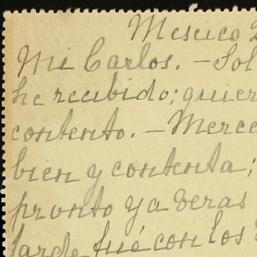 Mexico 2
Mi Carlos. - Sol
he recibido; quier
contento. - Merce
bien y contenta;
pronto ya veras
tarde fué con los